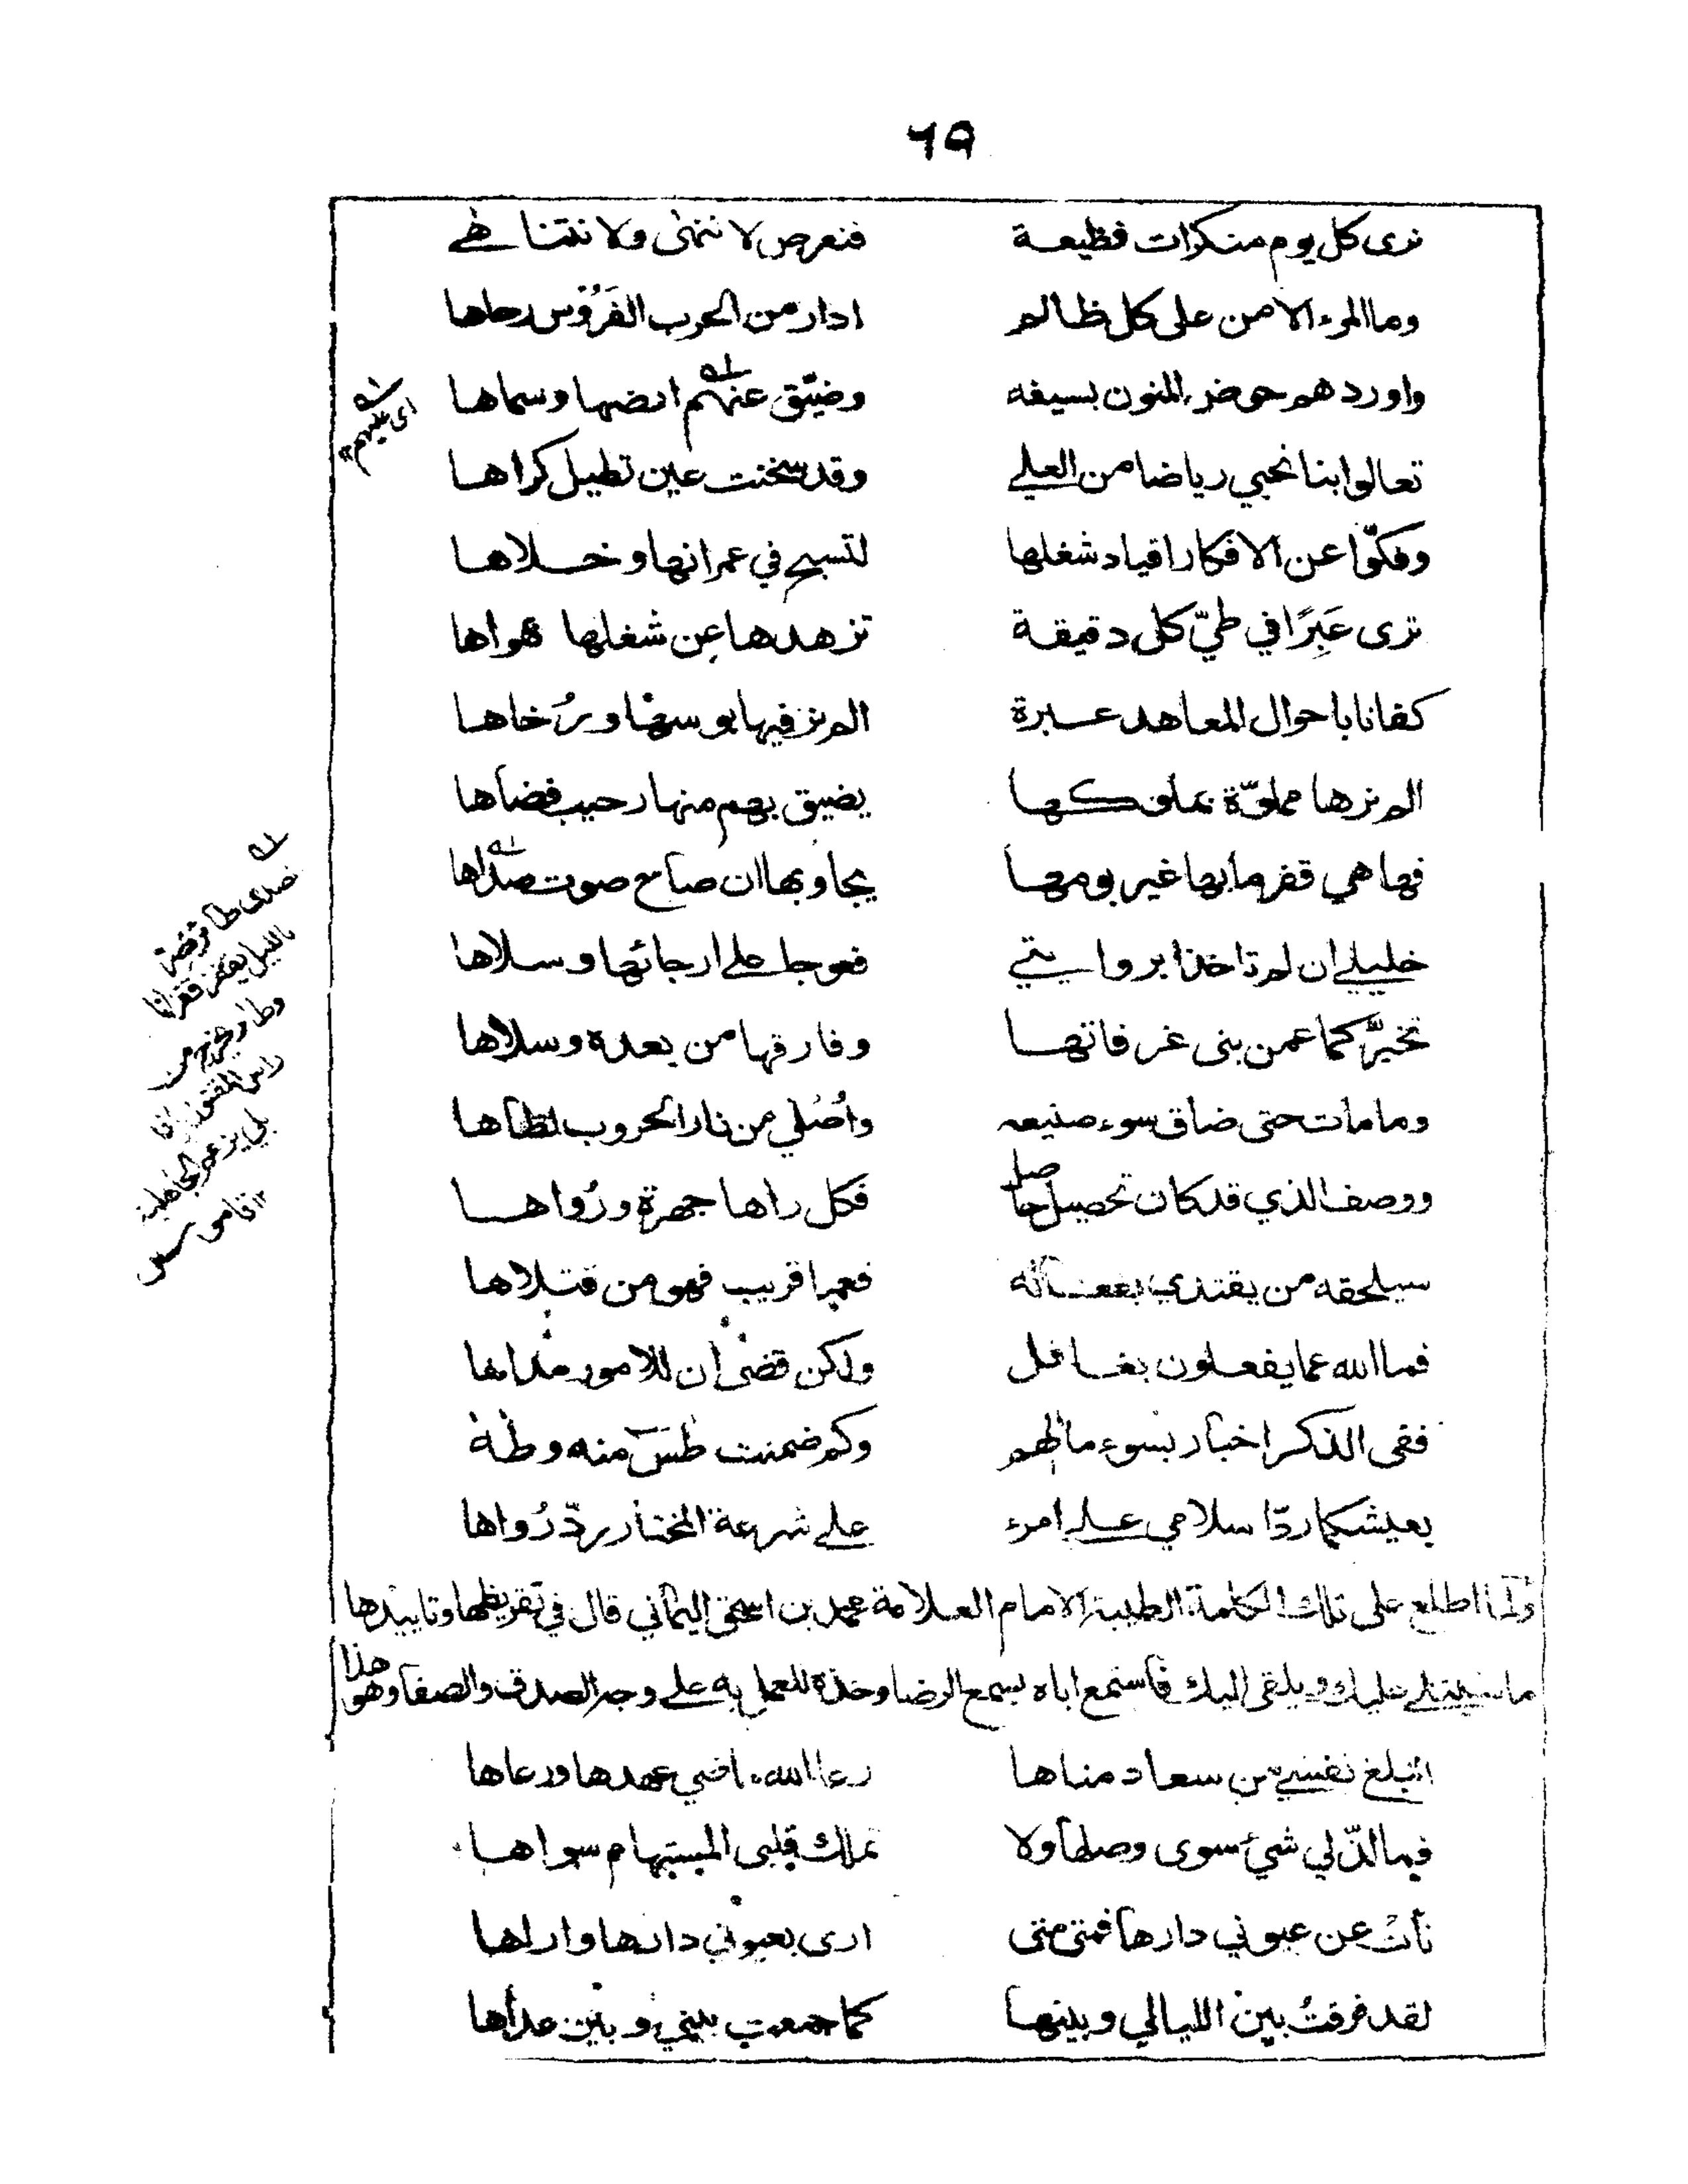 ٦٩
نرى كل يوم منكرات فظيعة فنعرض لا ننهى ولا نتناهے
وما المرء الا من على كل ظالم ادار من الحرب الضَرُوس رحاها
واوردهم حوض المنون بسيفه وضيّق عنهم ارضها وسماها
اى عليهم
تعالوا بنا نحيي رياضا من العلے وقد سخنت عين تطيل كراها
وفكّوا عن الافكار اقياد شغلها لتسبح في عمرانها وخلاها
نرى عِبَرًا في طيّ كل دقيقة تزهدها عن شغلها هواها
كفانا باحوال المعاهد عبرة الم نر فيها بوسها ورُخاها
الم نرها مملوّة بملوكها يضيق بهم منها رحيب فضاها
فها هي قفر ما بها غير بومها يجاوبها ان صاح صوت صداها
خليلے ان لم تاخذا بروايتے فعوجا علے ارجائها وسلاها
تخبّركما عمن بنى غرفاتها وفارقها من بعده وسلاها
وما مات حتى ضاق سوء صنيعه وأصلي من نار الحروب لظاها
ووصف الذي قد كان تحصيل حاصل فكل راها جهرة ورُواها
سيلحقه من يقتدي بفعاله فعما قريب فهو من قتلاها
فما الله عما يفعلون بغافل ولكن قضى ان للامور مداها
ففى الذكر اخبار بسوء مالهم وكم ضمنت طٰسٓ منه وطٰهٰ
بعيشكما ردّا سلامي علے امرء علے شرعة المختار يردّ رُواها
ولما اطلع على تلك الكلمة الطيبة الامام العلامة محمد بن اسحق اليماني قال في تقريظها وتاييدها
ما سيتلے عليك ويلقى اليك فاستمع اياه بسمع الرضا وخذه للعمل به علے وجه الصدق والصفا وهو هذا
اتبلغ نفسے من سعاد مناها رعا الله ماضي عهدها ورعاها
فما لذّ لي شيئ سوى وصلها ولا تملك قلبى المستهام سواها
نأت عن عيوني دارها فمتى متى ارى بعيوني دارها واراها
لقد فرقت بين الليالي وبينها كما جمعت بيني وبين عداها
صدى طائر
بالليل يقفز قفزانا
وطائر يخرج من
راس المقتول
بزعم الجاهلية
١٢ قاموس